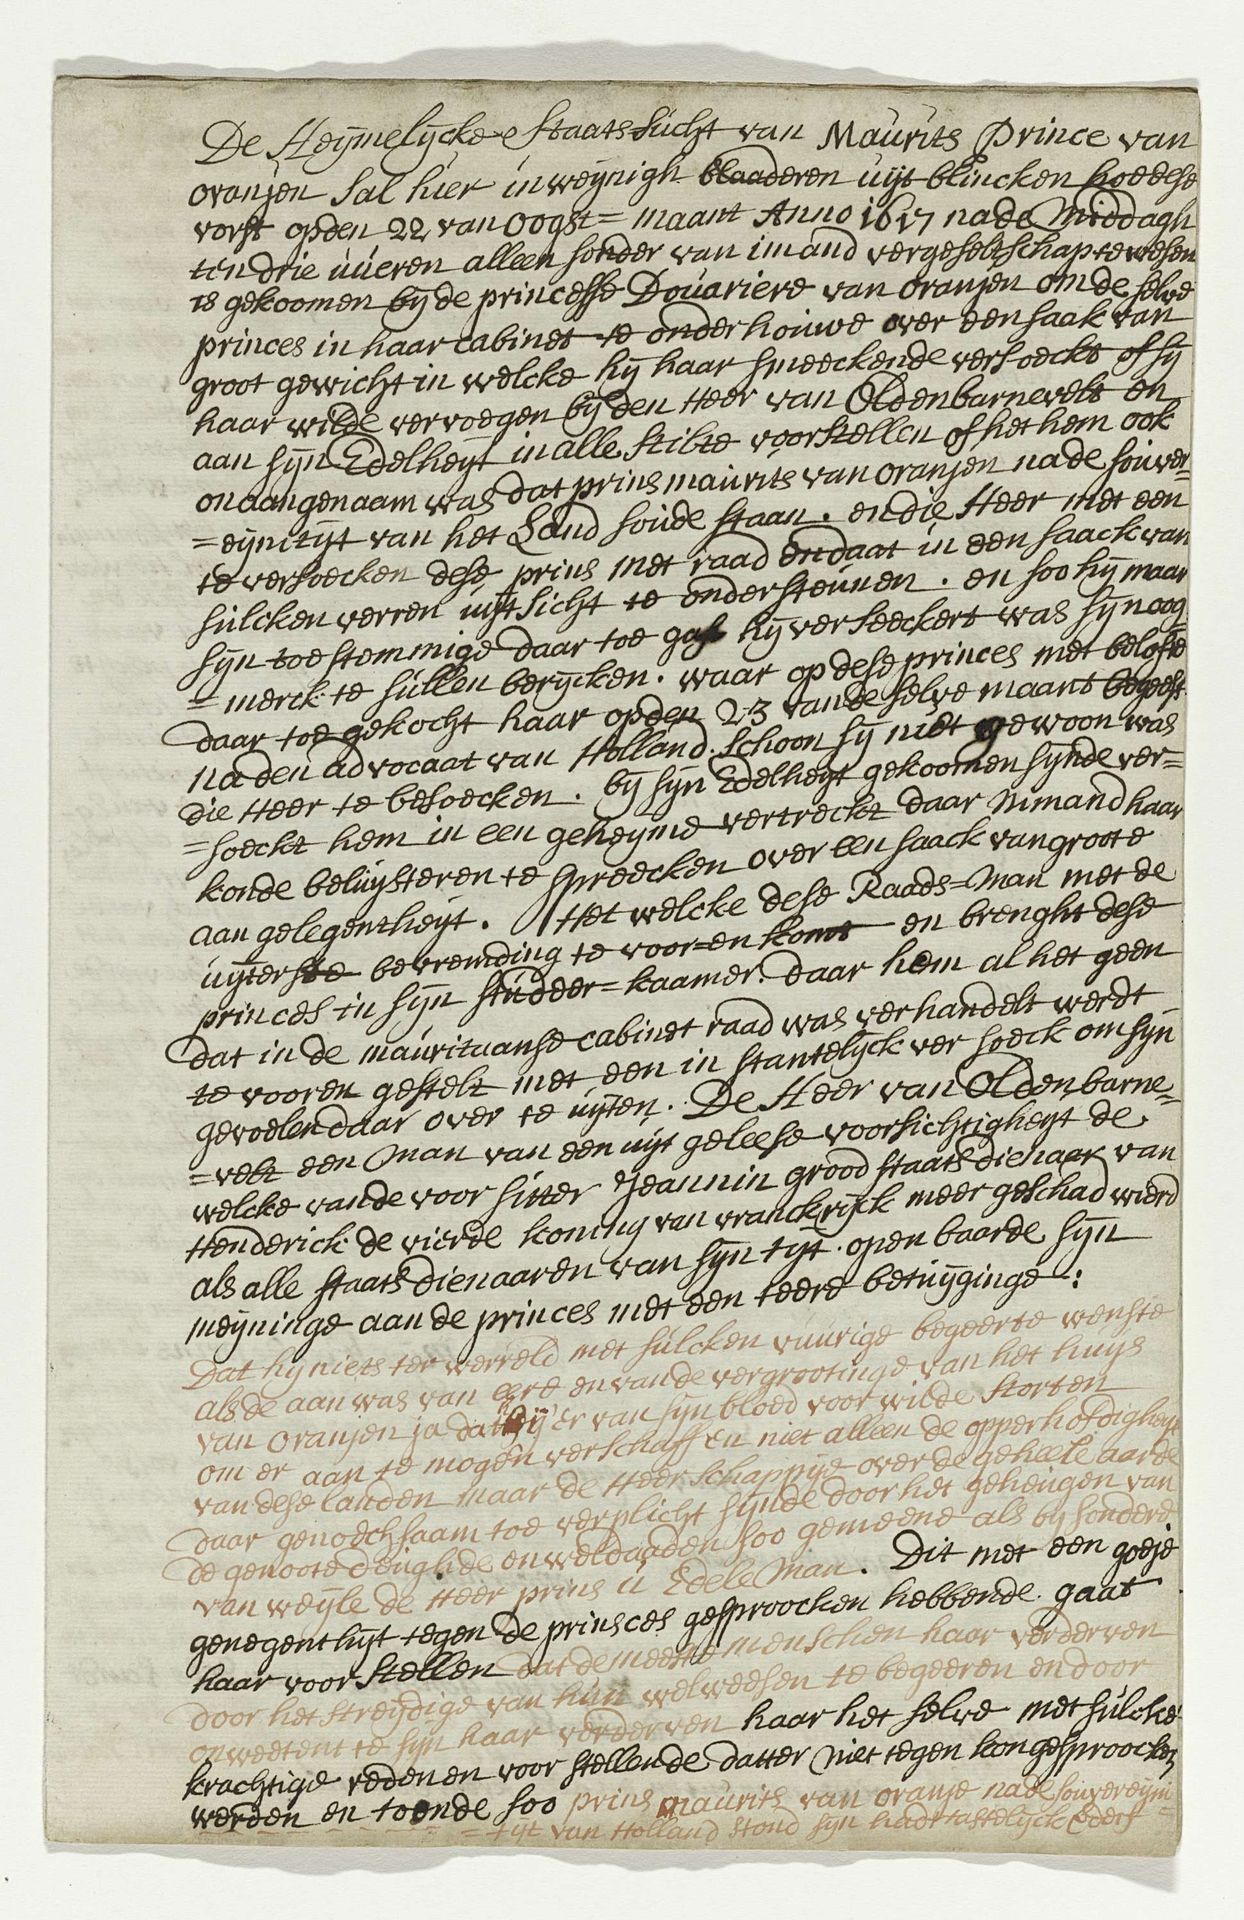 De Heÿmelÿcke Staatssucht van Maurits Prince van
oranjen sal hier in weÿnigh blaaderen uÿt blincken hoe dese
vorst op den 22 van oogst= maant Anno 1617 nade Middagh
ten drie uueren alleen sonder van imand vergeseltschap te wesen
is gekoomen bÿ de princesse Douariere van oranjen om de selve
princes in haar cabinet te onderhouwe over een saak van
groot gewicht in welcke hÿ haar smeeckende versoeckt of sÿ
haar wilde vervoegen bÿ den Heer van Oldenbarnevelt en
aan sÿn Edelheÿt in alle stilte voorstellen of het hem ook
onaangenaam was dat prins maurits van oranjen nade souver=
=eÿnitÿt van het Land soude staan. en die Heer met een
te versoecken dese prins met raad en daat in een saack van
sulcken verren uÿt sicht te ondersteunen. en soo hÿ maar
sÿn toestemmige daar toe gaf hÿ verseeckert was sÿn oog
=merck te sullen berÿcken. waar op dese princes met belofte
daar toe gekocht haar op den 23 van de selve maant begeeft
na den advocaat van Holland. schoon sÿ niet gewoon was
die Heer te besoecken. bÿ sÿn Edelheÿt gekoomen sÿnde ver=
=soeckt hem in een geheÿme vertreckt daar nimand haar
konde beluÿsteren te spreecken over een saack van groote
aan gelegentheÿt. Het welcke dese Raads=Man met de
uÿterste bevremding te voor=en komt en brenght dese
princes in sÿn studeer=kaamer. daar hem al het geen
dat in de mauritaanse cabinet raad was verhandelt werdt
te vooren gestelt met een in stantelÿck ver soeck om sÿn
gevoelen daar over te uÿten. De Heer van Oldenbarne=
=velt een Man van een uÿt geleese voorsichtigheÿt de
welcke van de voor sitter Jeannin grood staats dienaar van
Henderick de vierde koning van vranckrÿck meer geschad wierd
als alle staats dienaaren van sÿn tÿt. openbaarde sÿn
meÿninge aan de princes met een teere betuÿginge :
Dat hÿ niets ter werreld met sulcken vuurige begeerte wenste
als de aan was van eere en van de vergrootinge van het huÿs
van oranjen ja dat hÿ er van sÿn bloed voor wilde storten
om er aan te mogen verschaffen niet alleen de opperhofdigheÿt
van dese landen maar de Heer schappÿe over de geheele aarde
daar genoechsaam toe verplicht sÿnde door het geheugen van
de genoote deughde en weldaaden soo gemeene als bÿ sondere
van weÿle de Heer prins u Edele Man. Dit met een goeje
genegentlÿt tegen de prinsces gesproocken hebbende. gaat
haar voor stellen dat de meeste menschen haar verderven
door het streÿdige van hun welweesen te begeeren en door
onweetent te sÿn haar verderven haar het selve met sulcke
krachtige redenen voor stellende datter niet tegen kon gesproocken
werden en toonde soo prins maurits van oranje nade souvereÿni=
=tÿt van Holland stond sÿn hadt tastelÿck